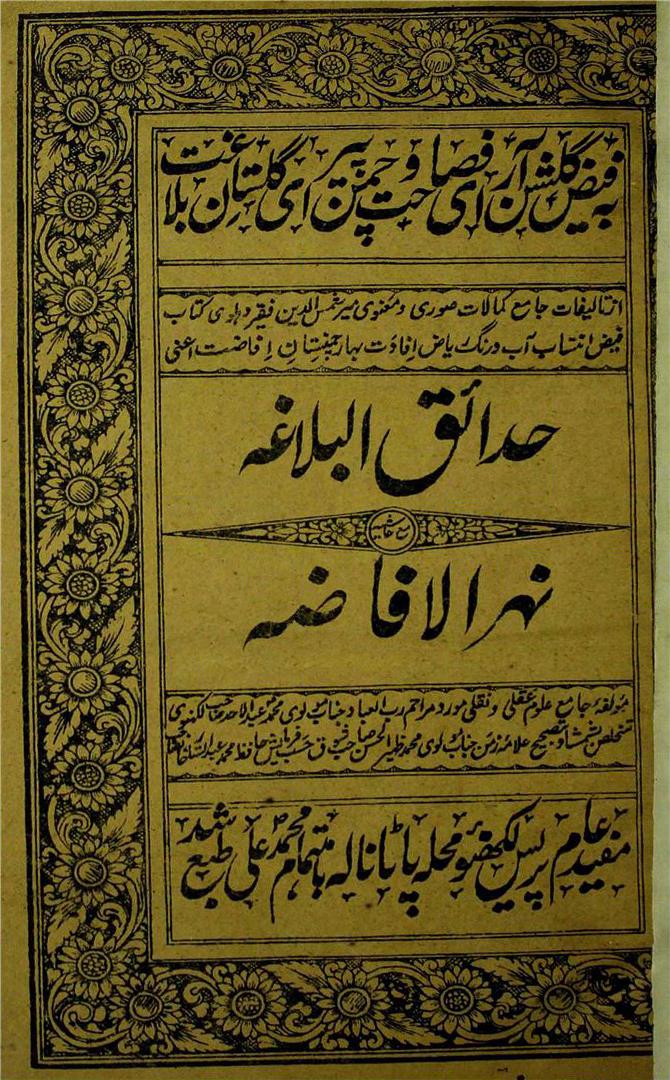 به فیض گلشن آرای فصاحت و چمن پیرای گلستان بلاغت
از تالیفات جامع کمالات صوری و معنوی میر شمس الدین فقیر دہلوی کتاب
فیض انتساب آب و رنگ ریاض افادت بہار چمنستان افاضت اعنی
حدائق البلاغه
مع حاشیه
نهر الافاضه
مولفۂ جامع علوم عقلی و نقلی مورد مراحم رب العباد جناب مولوی محمد عبدالاحد صاحب لکهنوی
متخلص بشمشاد بتصحیح علامۂ زمن جناب مولوی محمد ظہیر الحسن صاحب شوق حسب فرمایش حافظ محمد عبدالستار خان
مفید عام پریس لکهنؤ محلہ پاٹانالہ باہتمام محمد علی طبع شد